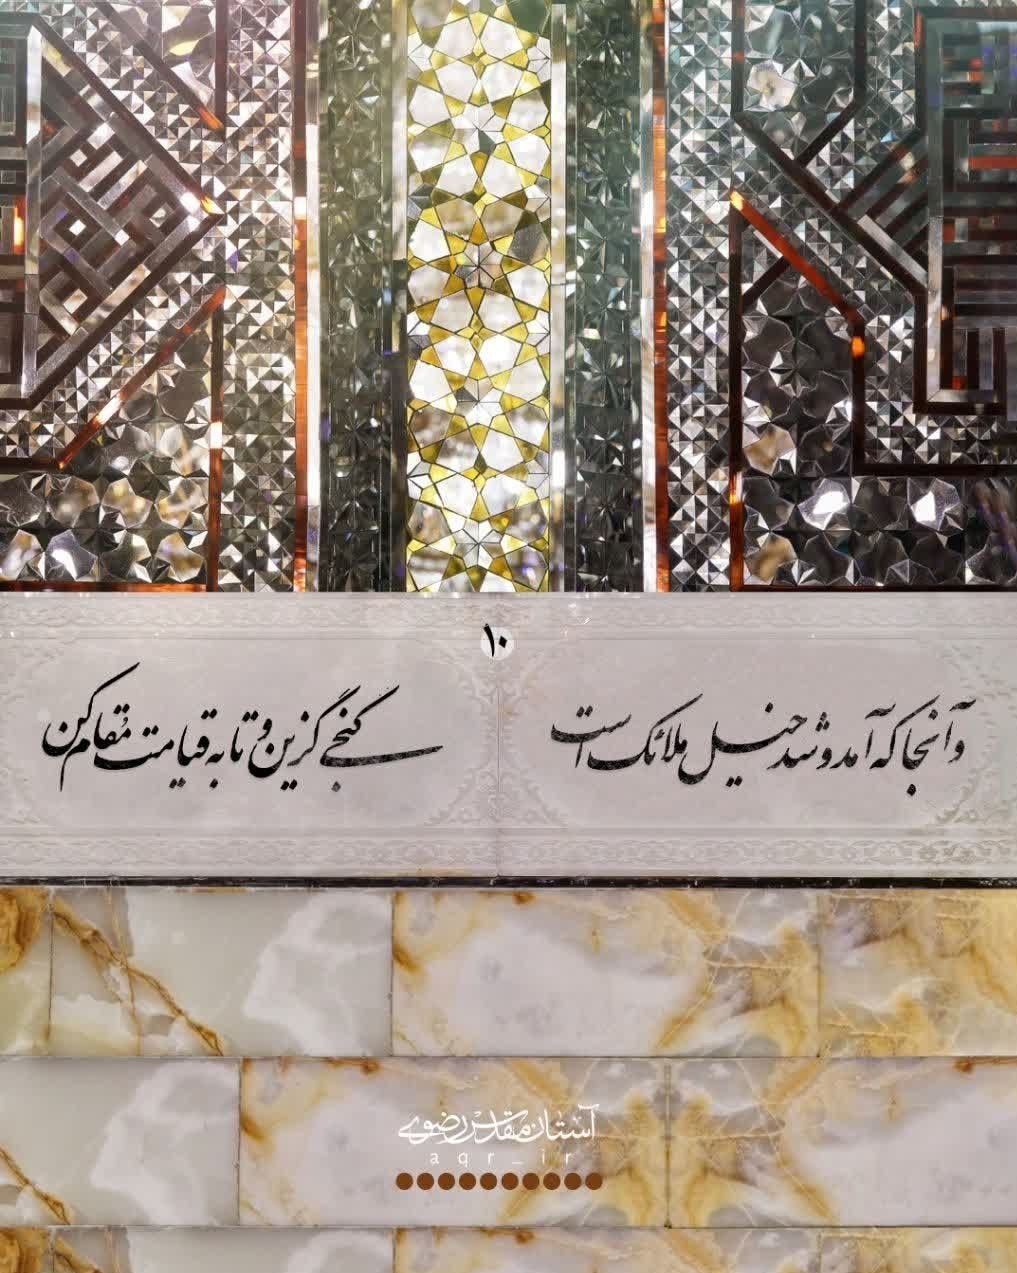 ۱۰
وآنجا که آمد و شد خیل ملائک است
کنجی گزین و تا به قیامت مُقام کن
آستان مقدس رضوی
aqr_ir